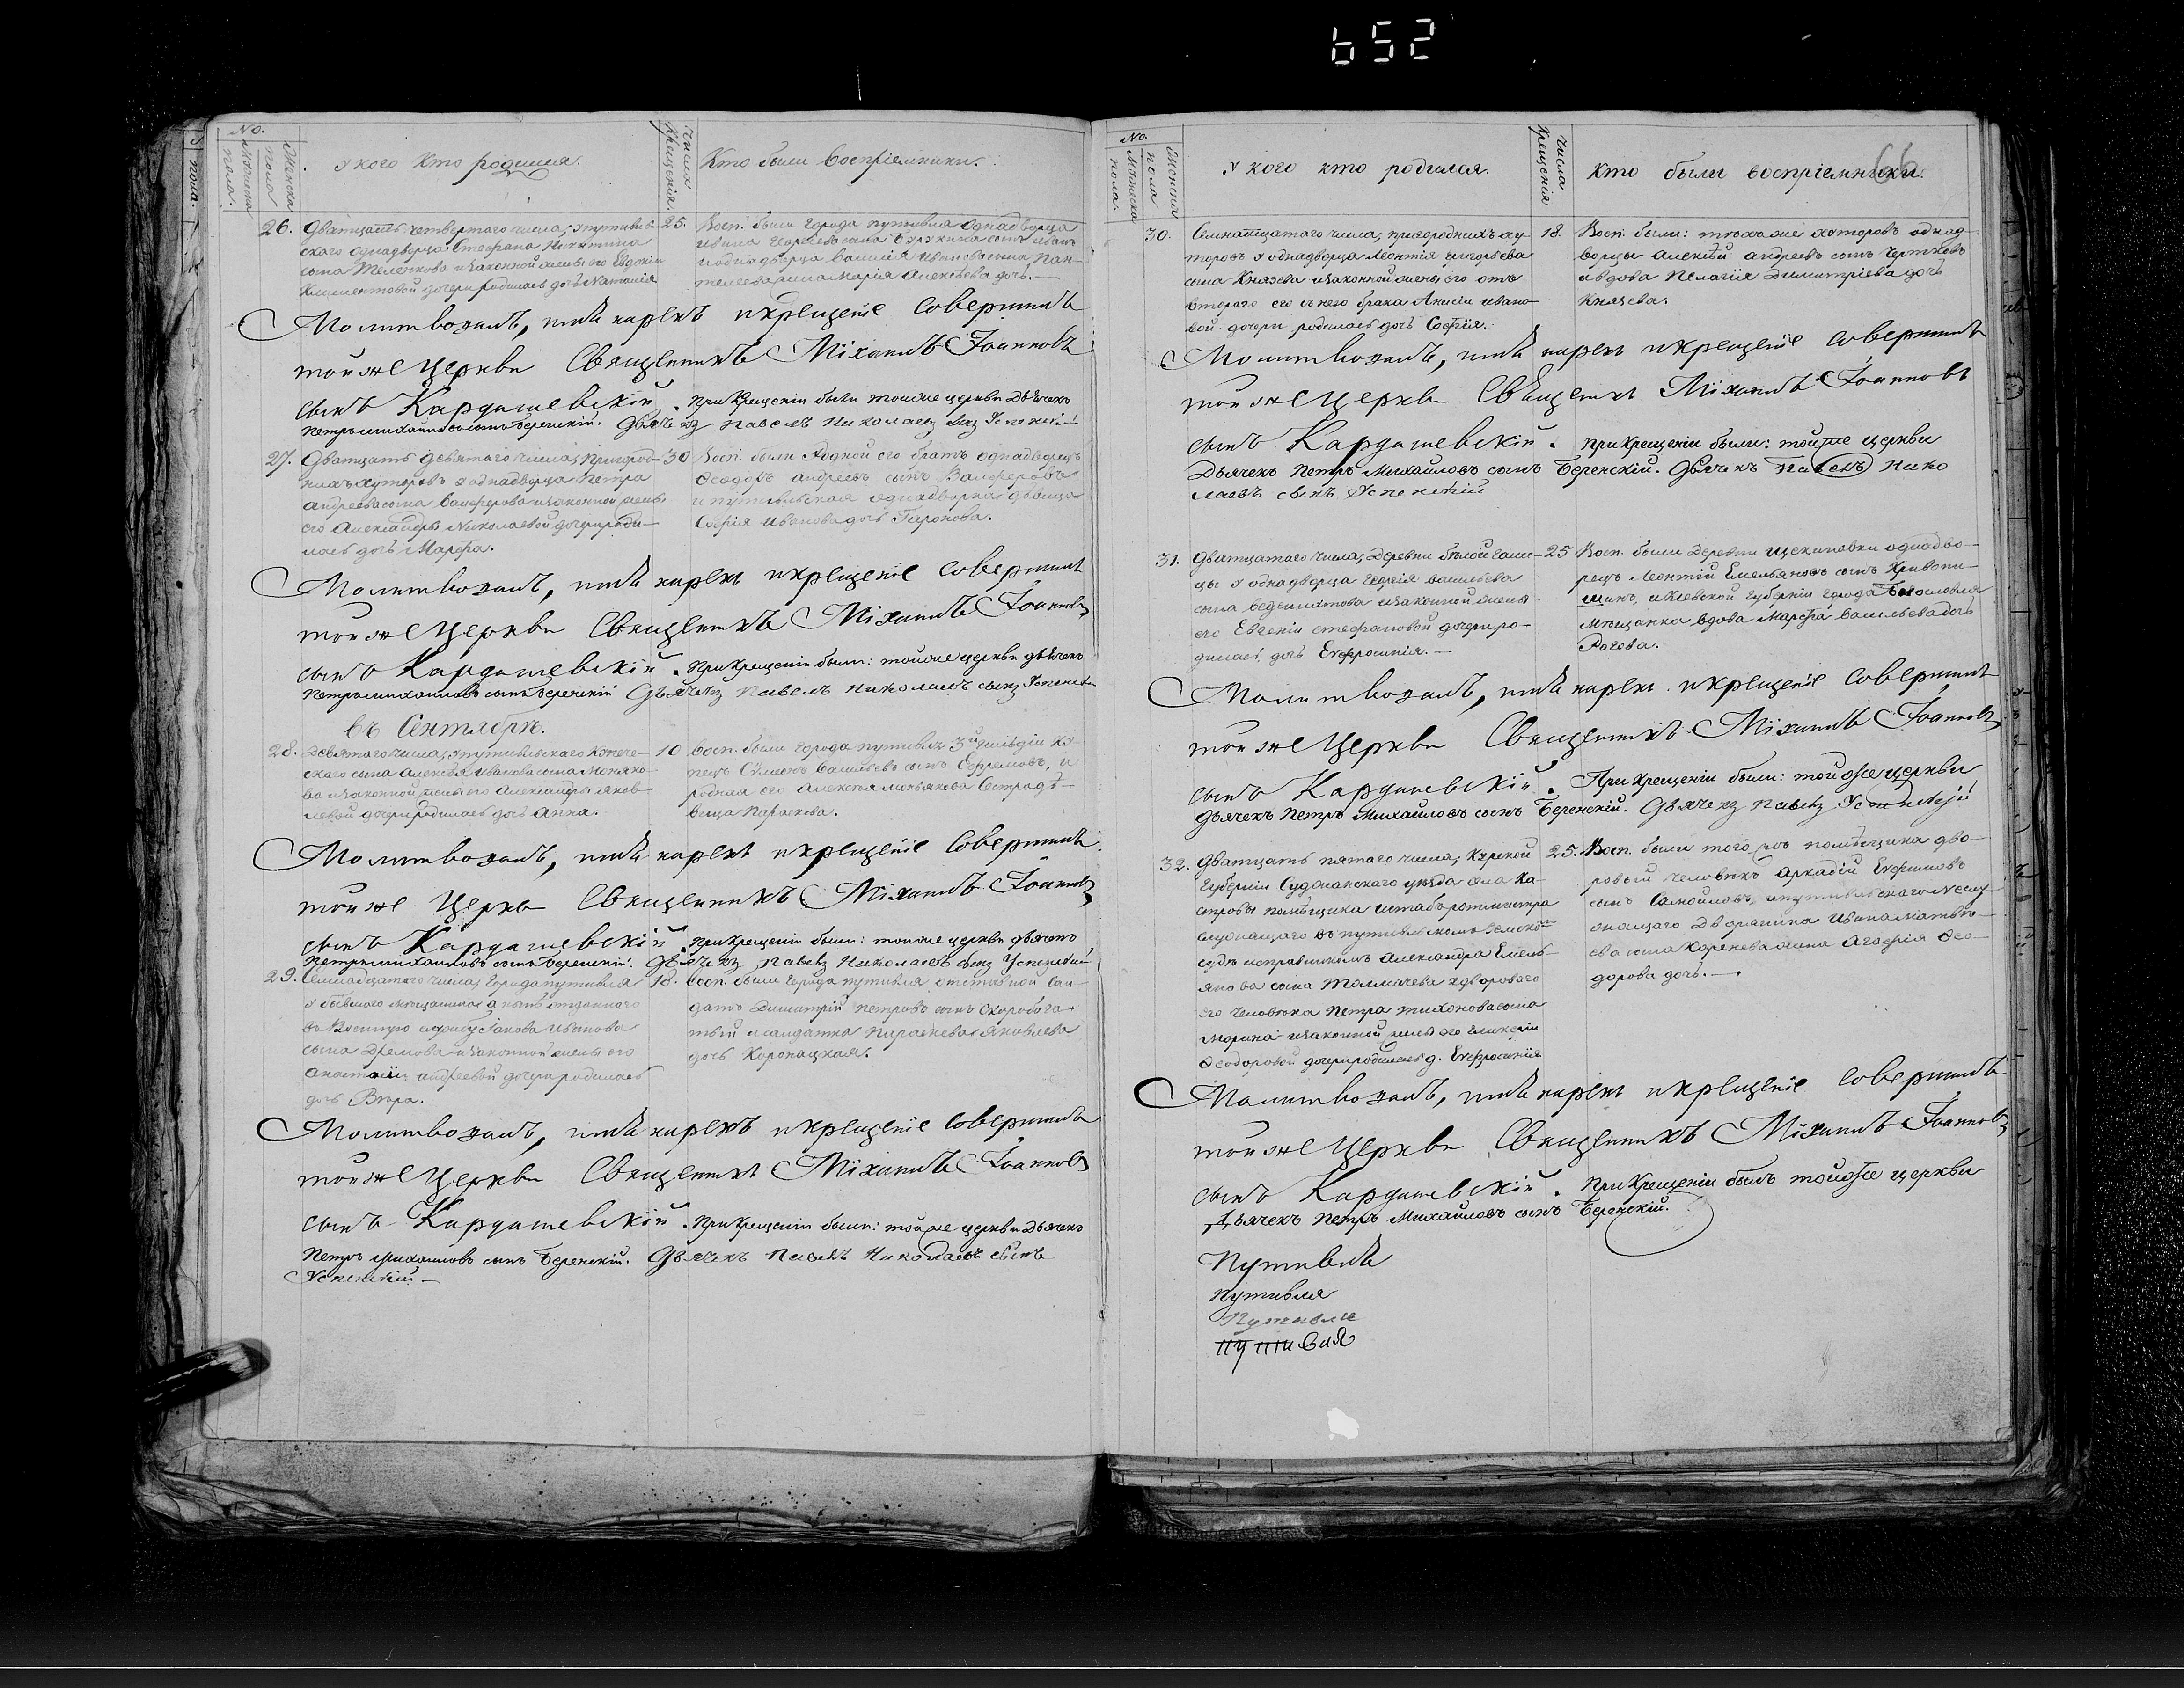 652
66
No.
Мужеска пола.
Женска пола
У кого кто родился.
Числа крещенія.
Кто были воспріемники.
26. Дватцать четвертаго числа, у путивль-
скаго однадворца Стефана Никитина
сына Теленкова и законной жены его Евдокіи
Климентовой дочери родилась дочь Наталія
25. Восп. были города путивля однадворца
Ивана Георгіева сына сынъ Иванъ
и однадворца Василія Иванова сына Пан-
телеева жена Марія Алексѣева дочь.—
Молитвовалъ, имя нарекъ и крещеніе совершилъ
тойже Церкви Священникъ Міхаилъ Іоанновъ
сынъ Кардашевскій. При крещеніи были тойже церкви дьячекъ
Петръ михайловъ сынъ Беренскій. Дьячекъ Павелъ Николаевъ сынъ Успенскій
27. Дватцать девятаго числа, пригород-
ныхъ хуторовъ у однадворца Петра
Андреева сына Ванферова и законной жены
его Александры Николаевой дочери роди-
лась дочь Марфа.
30 Восп. были родной его братъ однадворецъ
Ѳеодоръ андреевъ сынъ Ванферовъ
и путивльская однадворка девица
Софія Иванова дочь
Молитвовалъ, имя нарекъ и крещеніе совершилъ
тойже Церкви Священникъ Міхаилъ Іоанновъ
сынъ Кардашевскій. При крещеніи были: тойже церкви дьячекъ
Петръ михайловъ сынъ Беренскій Дьячекъ Павелъ Николаевъ сынъ Успенскій
въ Сентябрѣ.
28. Девятаго числа, у путивльскаго купече-
скаго сына Алексѣя Иванова сына
и законной жены его Александры Яков-
левой дочери родилась дочь Анна.
10 Восп. были города путивля 3й гильдіи ку-
пецъ Сѵмеонъ Васильевъ сынъ Ефремовъ, и
родная его Алексѣя сестра дѣ-
вица Параскева.
Молитвовалъ, имя нарекъ и крещеніе совершилъ
тойже Церкви Священникъ Міхаилъ Іоанновъ
сынъ Кардашевскій. При крещеніи были: тойже церкви дьячекъ
Петръ михайловъ сынъ Беренскій. Дьячекъ Павелъ Николаевъ сынъ Успенскій
29. Семнадцатаго числа, города путивля
у бывшаго мещанина а нынѣ отданнаго
въ военную службу Іакова Иванова
сына Дремова и законной жены его
Анастасіи андреевой дочери родилась
дочь Вѣра.
18. Восп. были города путивля отставной сол-
датъ Димитрій Петровъ сынъ Скоробога-
тый и солдатка Параскева Яковлева
дочь
Молитвовалъ, имя нарекъ и крещеніе совершилъ
тойже Церкви Священникъ Міхаилъ Іоанновъ
сынъ Кардашевскій. При крещеніи были: тойже церкви Дьячекъ
Петръ Михайловъ сынъ Беренскій. Дьячекъ Павелъ Николаевъ сынъ
Успенскій—
No.
Мужеска пола.
Женска пола
У кого кто родился.
Числа крещенія
Кто были воспріемники.
30. Семнатцатаго числа, пригородныхъ ху-
торовъ у однадворца Леонтія григорьева
сына Князева и законной жены его отъ
втораго его съ нею брака Анисіи Ивано-
вой дочери родилась дочь Софія.
18. Восп. были: тѣхъ же хуторовъ однад-
ворцы Алексѣй андреевъ сынъ Чертковъ
и вдова Пелагія Димитріева дочь
Князева.
Молитвовалъ, имя нарекъ и крещеніе совершилъ
тойже Церкви Священникъ Міхаилъ Іоанновъ
сынъ Кардашевскій. При крещеніи были: тойже церкви
Дьячекъ Петръ Михайловъ сынъ Беренскій. Дьячекъ Павелъ Нико
лаевъ сынъ Успенскій
31. Дватцатаго числа, деревни бѣлой гали-
цы у однадворца Георгія Васильева
сына и законной жены
его Евгеніи стефановой дочери ро-
дилась дочь Евфросинія.—
25 Восп. были деревни Щекиновки однадво-
рецъ Леонтій Емельяновъ сынъ Кривопи-
шинъ, и Кіевской губерніи города Богослова
мѣщанка вдова Марфа Васильева дочь
Рогова.
Молитвовалъ, имя нарекъ и крещеніе совершилъ
тойже Церкви Священникъ Міхаилъ Іоанновъ
сынъ Кардашевскій. При крещеніи были: тойже церкви
Дьячекъ Петръ Михайловъ сынъ Беренскій. Дьячекъ Павелъ Успенскій
32. Дватцать пятаго числа, Курской
губерніи Суджанскаго уѣзда села Ка-
стровы помѣщика штабъ ротмистра
служащаго въ путивльскомъ земскомъ
судѣ исправникомъ Александра Емель-
янова сына Толмачева у двороваго
его человѣка Петра тихонова сына
Морина и законной жены его Гликеріи
Ѳеодоровой дочери родилась д. Евфросинія
25. Восп. были того жъ помѣщика дво-
ровый человѣкъ Аркадій Евфимовъ
сынъ Самойловъ, и путивльскаго неслу-
жащаго дворянина Ивана Матвѣ-
ева сына Коренева жена Агафія Ѳео-
дорова дочь.—
Молитвовалъ, имя нарекъ и крещеніе совершилъ
тойже Церкви Священникъ Міхаилъ Іоанновъ
сынъ Кардашевскій. При крещеніи былъ тойже церкви
Дьячекъ Петръ Михайловъ сынъ Беренскій.
Путивля
путивля
Путивле
путивля